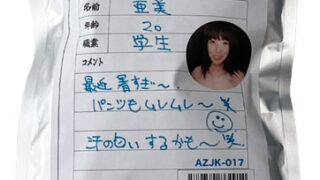 名前 亜美
年齢 20
職業 学生
コメント
最近 暑すぎ〜。
パンツもムレムレ〜 笑
汗の匂いするかも〜 笑
AZJK-017